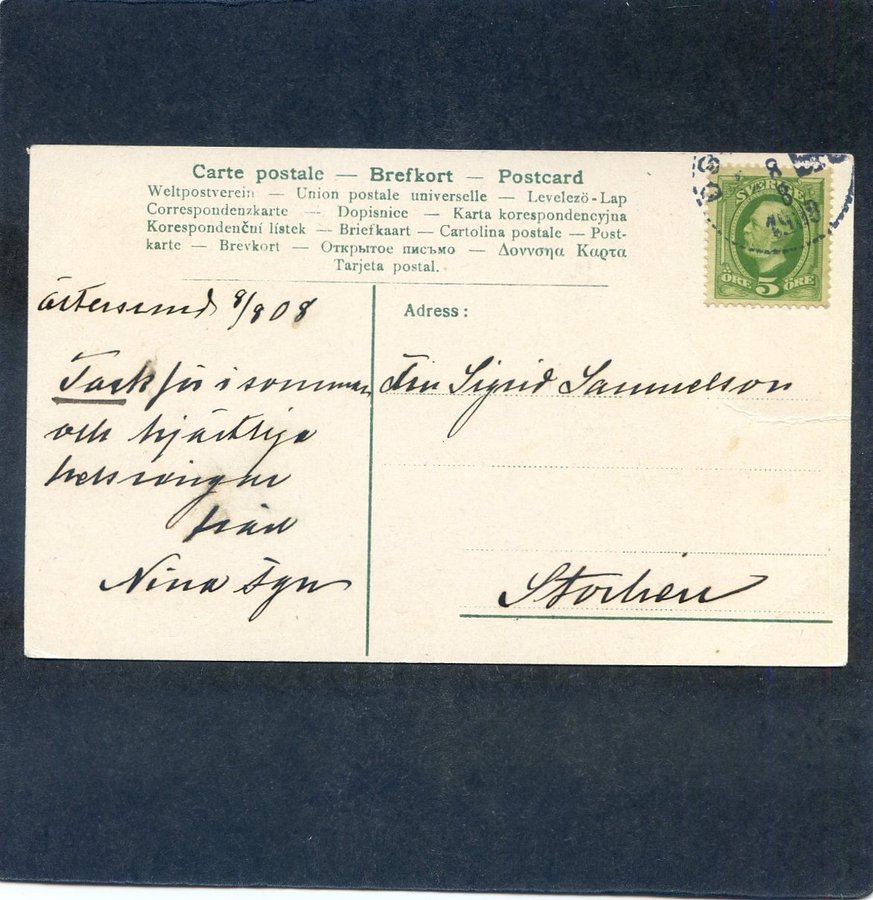 Carte postale — Brefkort — Postcard
Weltpostverein — Union postale universelle — Levelezö-Lap
Correspondenzkarte — Dopisnice — Karta korespondencyjna
Korespondenční lístek — Briefkaart — Cartolina postale — Post-
karte — Brevkort — Открытое письмо — Δοννσηα Καρτα
Tarjeta postal.
SVERIGE
ÖRE 5 ÖRE
8
8
1908
Östersund 8/8 08
Tack för i sommar
och hjärtliga
helsningar
från
Nina
Adress:
Sigrid Samuelson
Storlien